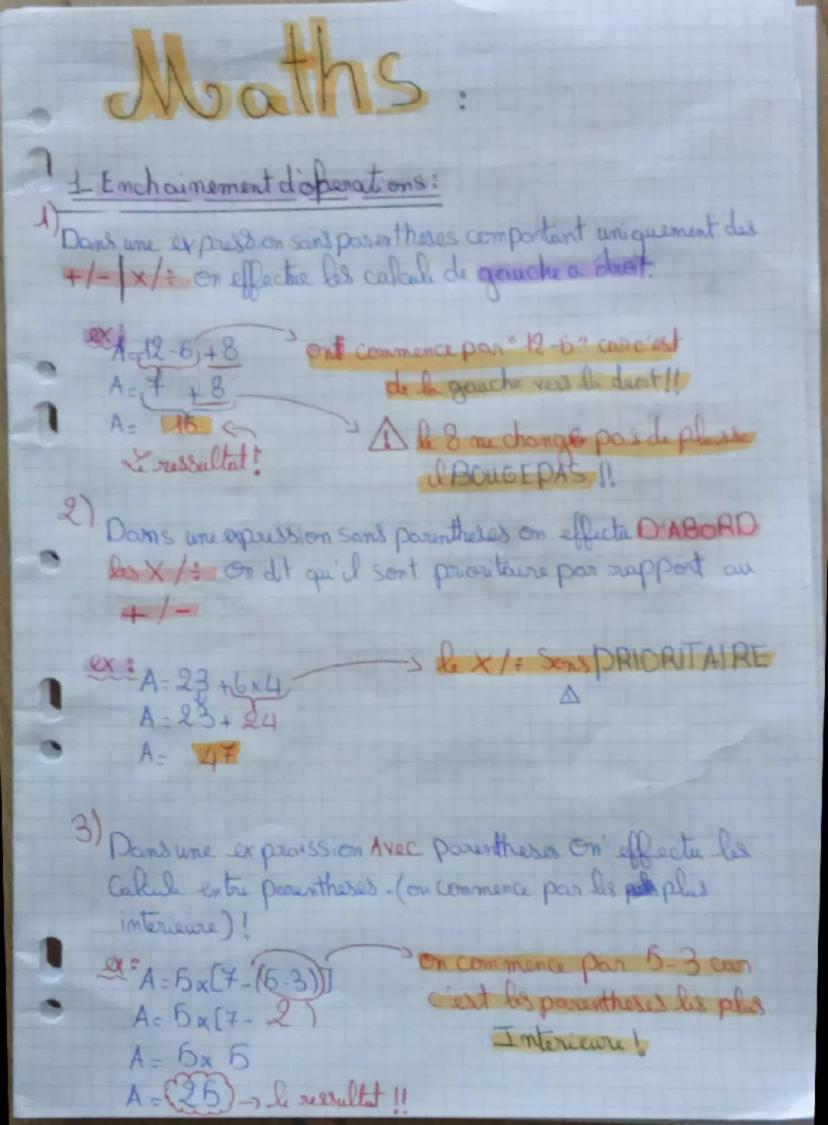 Maths :
1_ Enchainement d'óperations :
1)
Dans une expression sans parentheses comportant uniquement des
+/-|x/÷ on effectue les calculs de gauche a droit.
ex: A = 12-5 + 8
ont commence par "12-5" car c'est
de la gauche vers la droit !!
A = 7 + 8
A = 15
le ressultat !
⚠ le 8 ne change pas de plasse
il BOUGE PAS !!
2) Dans une expression sans parentheses on effectu D'ABORD
les X/÷ on dit qu'il sont prioritaire par rapport au
+/-
ex : A = 23 + 6x4
le x/÷ sons PRIORITAIRE
A = 23 + 24
A = 47
3) Dans une expraission AVEC parentheses on effectu les
Calculs entre parentheses. (on commence par les plus
interieure) !
ex : A = 5x[7-(5-3)]
on commence par 5-3 car
c'est les parentheses les plus
Interieure !
A = 5x[7- 2)
A = 5x 5
A = 25 → le ressultat !!